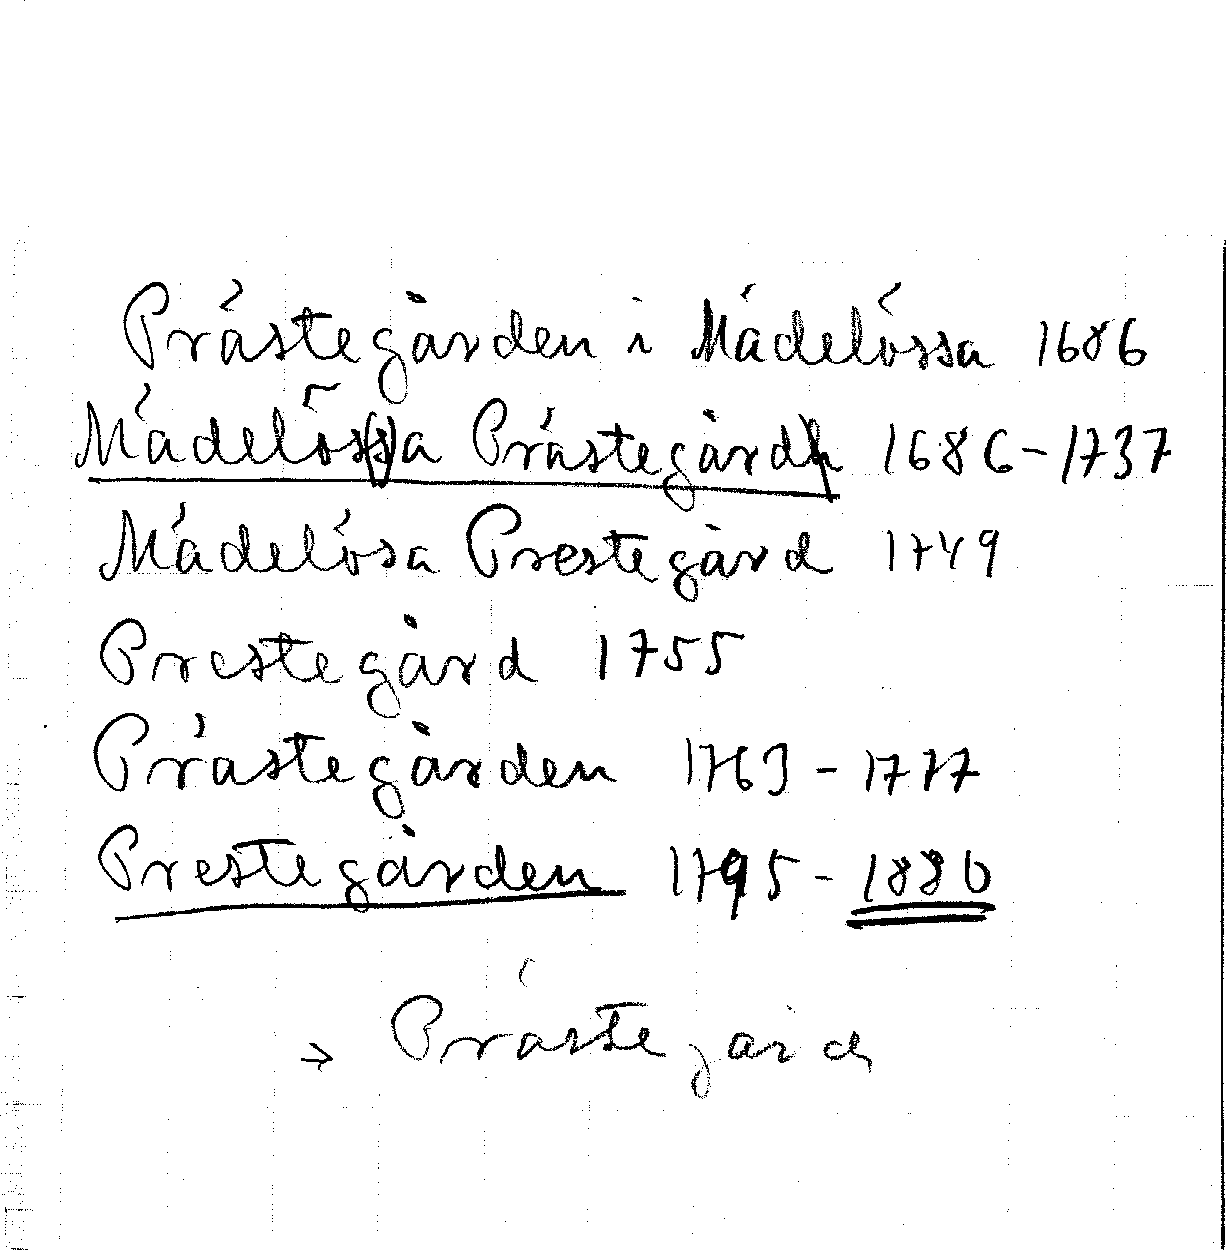 Prästegården i Mädelössa 1686
Mädelös(s)a Prästegård 1686-1737
Mädelösa Prestegård 1749
Prestegård 1755
Prästegården 1763-1777
Prestegården 1795-1880
→ Prästegård